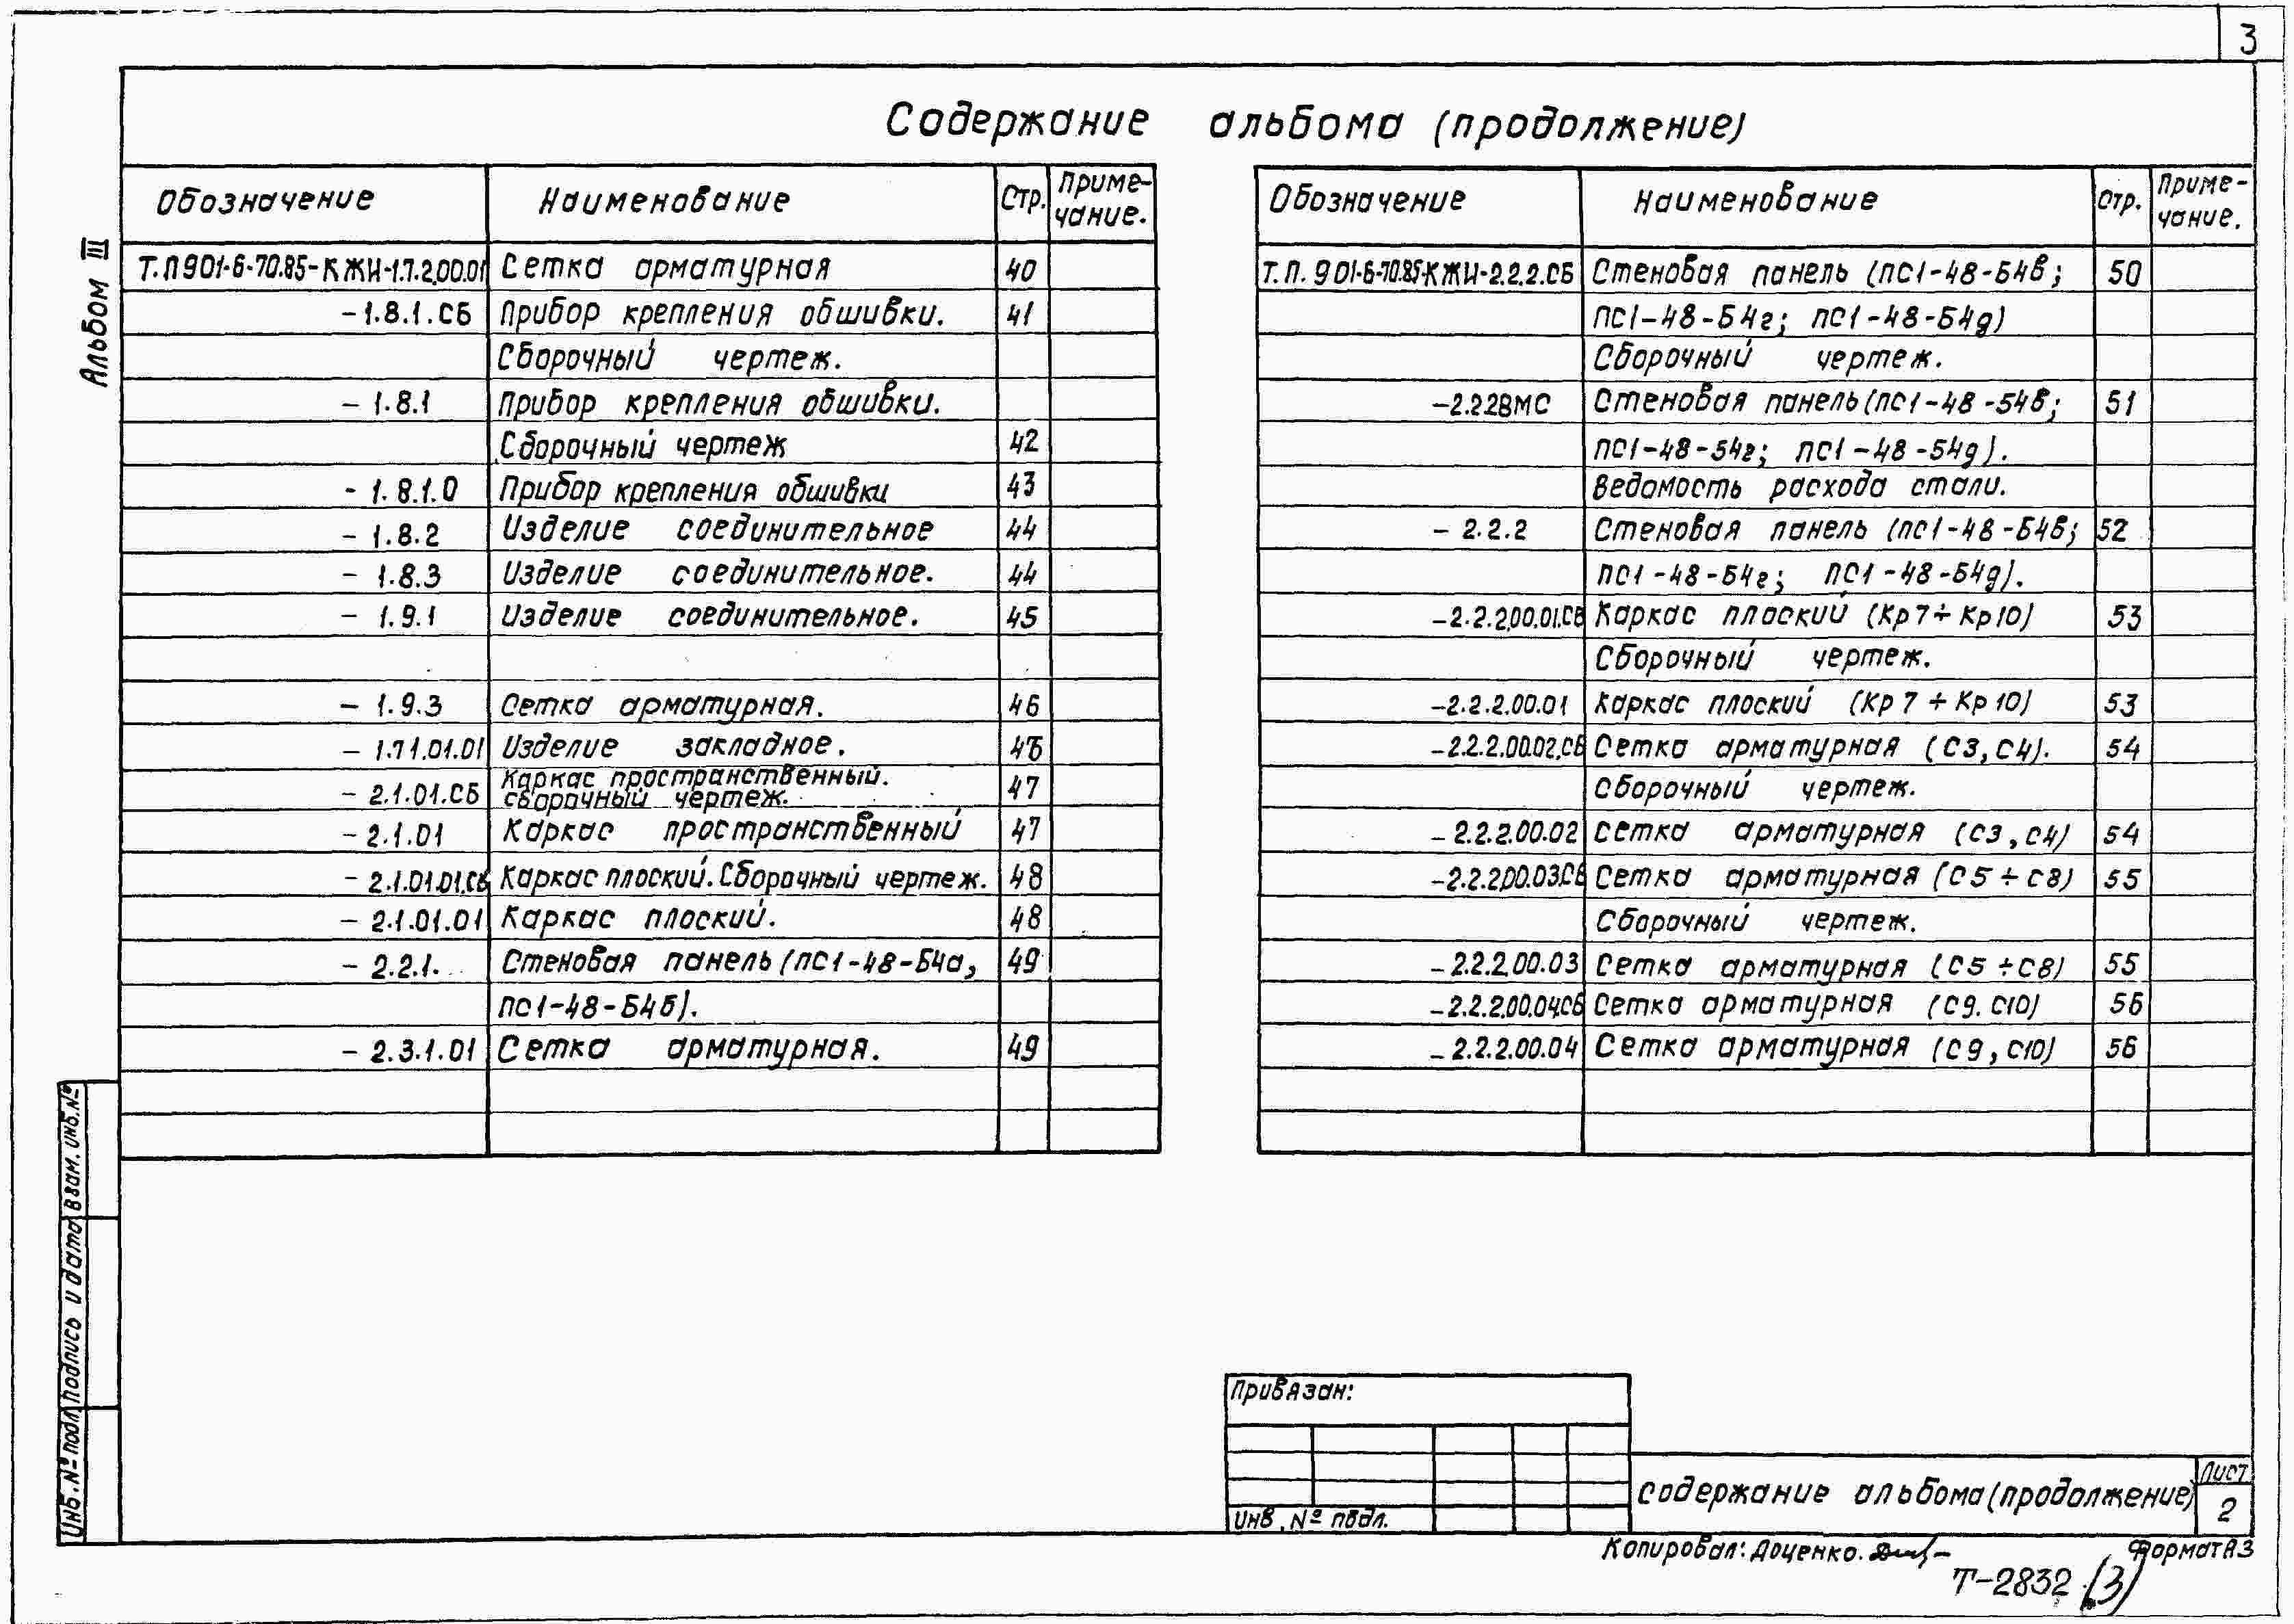 3
Содержание альбома (продолжение)
Альбом III
Обозначение Наименование Стр. Приме-
чание.
Т.П 901-6-70.85-КЖИ-1.7.2.00.01 Сетка арматурная 40
-1.8.1.СБ Прибор крепления обшивки. 41
Сборочный чертеж.
- 1.8.1 Прибор крепления обшивки.
Сборочный чертеж 42
- 1.8.1.0 Прибор крепления обшивки 43
- 1.8.2 Изделие соединительное 44
- 1.8.3 Изделие соединительное. 44
- 1.9.1 Изделие соединительное. 45
- 1.9.3 Сетка арматурная. 46
- 1.11.01.01 Изделие закладное. 46
- 2.1.01.СБ Каркас пространственный. 47
сборочный чертеж.
- 2.1.01 Каркас пространственный 47
- 2.1.01.01.СБ Каркас плоский. Сборочный чертеж. 48
- 2.1.01.01 Каркас плоский. 48
- 2.2.1. Стеновая панель (пс1-48-Б4а, 49
пс1-48-Б4б).
- 2.3.1.01 Сетка арматурная. 49
Обозначение Наименование Стр. Приме-
чание.
Т.П. 901-6-70.85-КЖИ-2.2.2.СБ Стеновая панель (пс1-48-Б4в; 50
пс1-48-Б4г; пс1-48-Б4д)
Сборочный чертеж.
-2.2.2ВМС Стеновая панель (пс1-48-54в; 51
пс1-48-54г; пс1-48-54д).
Ведомость расхода стали.
- 2.2.2 Стеновая панель (пс1-48-Б4в; 52
пс1-48-Б4г; пс1-48-Б4д).
-2.2.2.00.01.СБ Каркас плоский (Кр7÷Кр10) 53
Сборочный чертеж.
-2.2.2.00.01 Каркас плоский (Кр7÷Кр10) 53
-2.2.2.00.02.СБ Сетка арматурная (С3, С4). 54
Сборочный чертеж.
-2.2.2.00.02 Сетка арматурная (С3, С4) 54
-2.2.2.00.03.СБ Сетка арматурная (С5÷С8) 55
Сборочный чертеж.
-2.2.2.00.03 Сетка арматурная (С5÷С8) 55
-2.2.2.00.04.СБ Сетка арматурная (С9. С10) 56
-2.2.2.00.04 Сетка арматурная (С9, С10) 56
Инв.№ подл. Подпись и дата Взам. инв.№
Привязан:
Инв. № подл.
Содержание альбома (продолжение)
Лист
2
Копировал: Доценко.
Формат А3
Т-2832 (3)